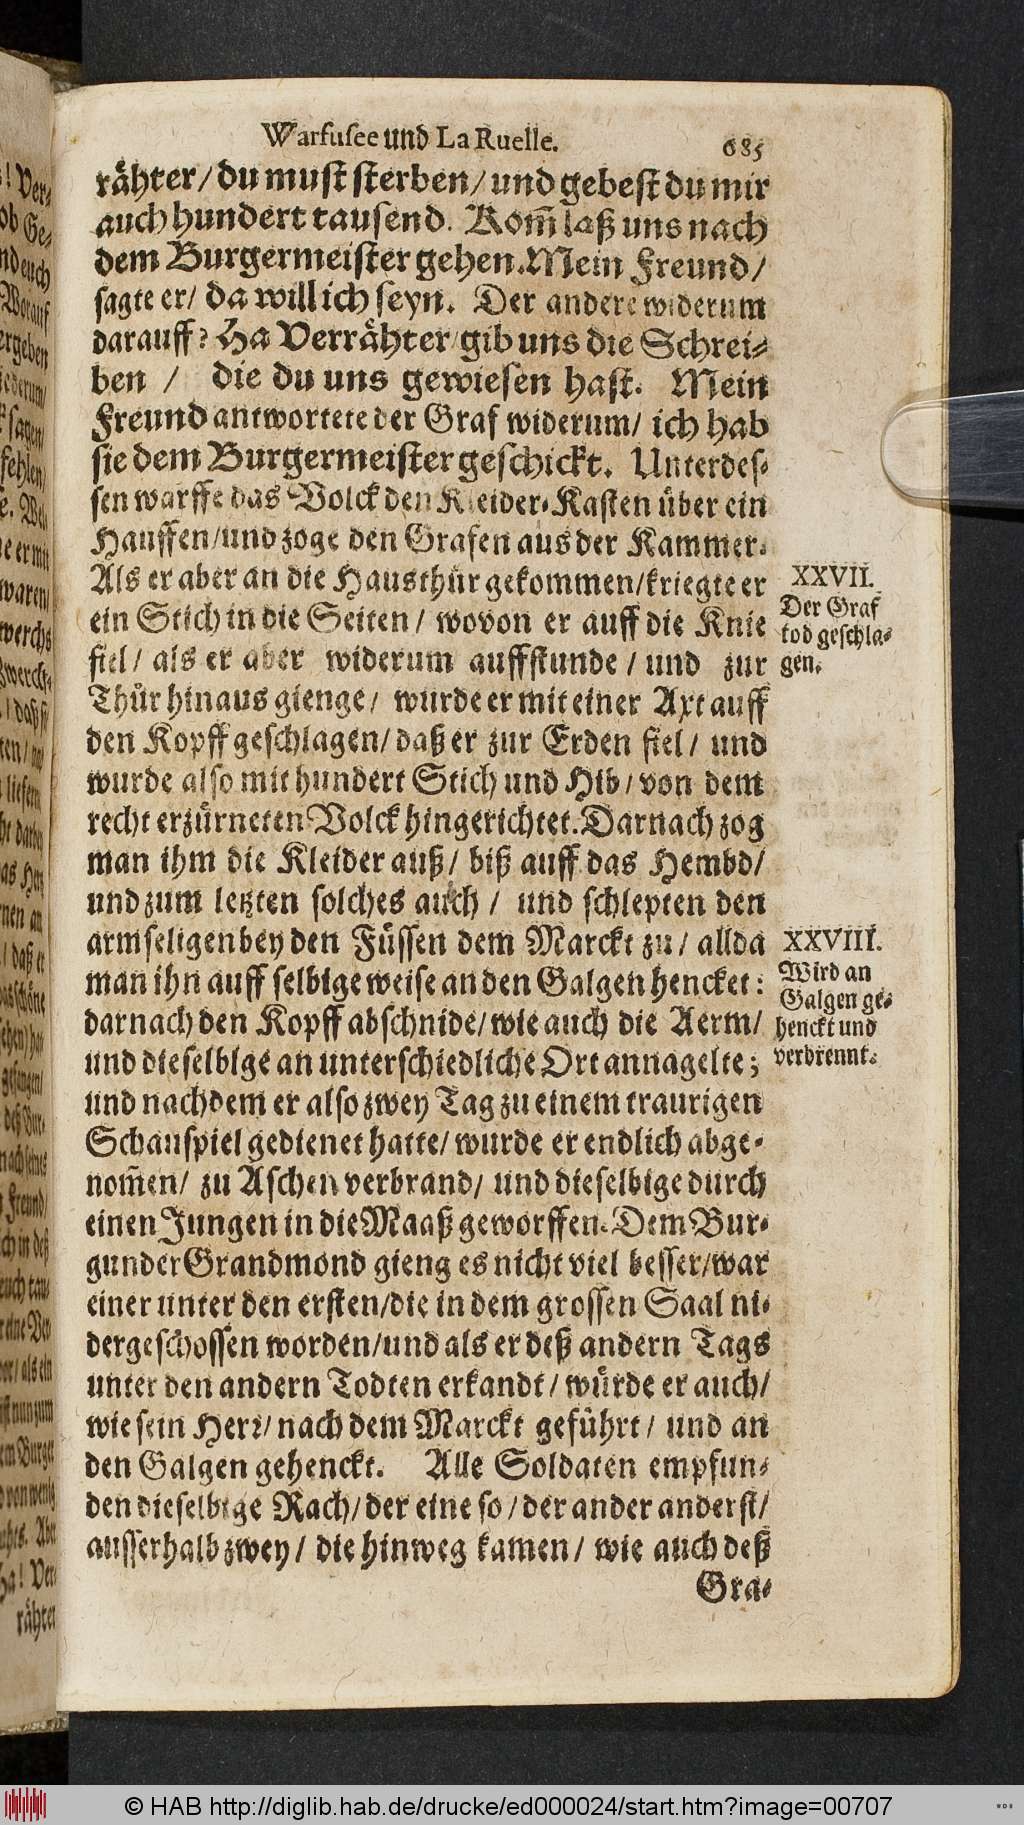 Warfusee und La Ruelle. 685
rähter/ du must sterben/ und gebest du mir
auch hundert tausend. Kom̃ laß uns nach
dem Burgermeister gehen. Mein Freund/
sagte er/ da will ich seyn. Der andere widerum
darauff? Ha Verrähter/ gib uns die Schrei-
ben / die du uns gewiesen hast. Mein
Freund antwortete der Graf widerum/ ich hab
sie dem Burgermeister geschickt. Unterdes-
sen warffe das Volck den Kleider-Kasten über ein
Hauffen/ und zoge den Grafen aus der Kammer.
Als er aber an die Hausthür gekommen/ kriegte er
ein Stich in die Seiten / wovon er auff die Knie
fiel/ als er aber widerum auffstunde / und zur
Thür hinaus gienge/ wurde er mit einer Axt auff
den Kopff geschlagen/ daß er zur Erden fiel/ und
wurde also mit hundert Stich und Hib/ von dem
recht erzürneten Volck hingerichtet. Darnach zog
man ihm die Kleider auß/ biß auff das Hembd/
und zum letzten solches auch / und schlepten den
armseligen bey den Füssen dem Marckt zu/ allda
man ihn auff selbige weise an den Galgen hencket:
darnach den Kopff abschnide/ wie auch die Aerm/
und dieselbige an unterschiedliche Ort annagelte;
und nachdem er also zwey Tag zu einem traurigen
Schauspiel gedienet hatte/ wurde er endlich abge-
nom̃en/ zu Aschen verbrand/ und dieselbige durch
einen Jungen in die Maaß geworffen. Dem Bur-
gunder Grandmond gieng es nicht viel besser/ war
einer unter den ersten/ die in dem grossen Saal ni-
dergeschossen worden/ und als er deß andern Tags
unter den andern Todten erkandt/ würde er auch/
wie sein Herr/ nach dem Marckt geführt/ und an
den Galgen gehenckt. Alle Soldaten empfun-
den dieselbige Rach/ der eine so / der ander anderst/
ausserhalb zwey/ die hinweg kamen/ wie auch deß
Gra-
XXVII.
Der Graf
tod geschla-
gen.
XXVIII.
Wird an
Galgen ge-
henckt und
verbrennt.
© HAB http://diglib.hab.de/drucke/ed000024/start.htm?image=00707